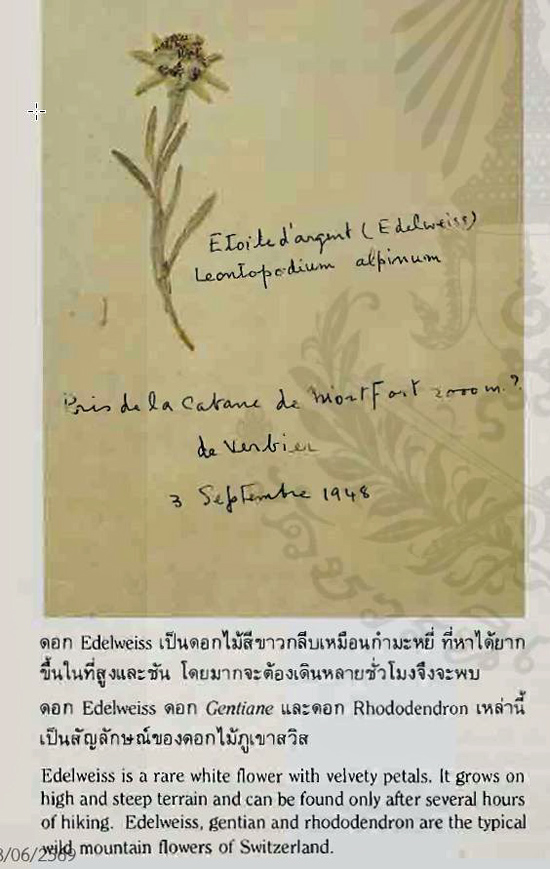 Etoile d'argent (Edelweiss)
Leontopodium alpinum
Pris de la Cabane de MontFort 2000 m.?
de Verbier
3 Septembre 1948
ดอก Edelweiss เป็นดอกไม้สีขาวกลีบเหมือนกำมะหยี่ ที่หาได้ยาก
ขึ้นในที่สูงและชัน โดยมากจะต้องเดินหลายชั่วโมงจึงจะพบ
ดอก Edelweiss ดอก Gentiane และดอก Rhododendron เหล่านี้
เป็นสัญลักษณ์ของดอกไม้ภูเขาสวิส
Edelweiss is a rare white flower with velvety petals. It grows on
high and steep terrain and can be found only after several hours
of hiking. Edelweiss, gentian and rhododendron are the typical
wild mountain flowers of Switzerland.
/06/2569